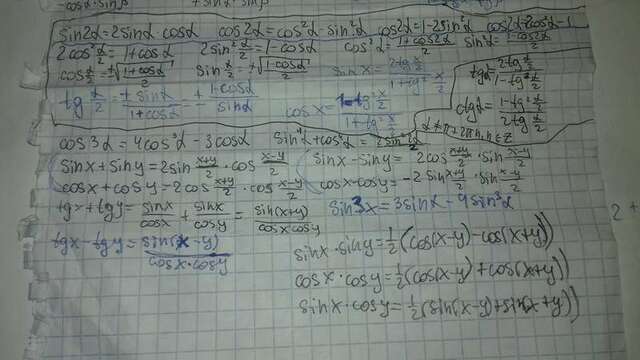 sin2α=2sinα·cosα cos2α=cos²α-sin²α cos2α=1-2sin²α cos2α=2cos²α-1
2cos²α/2=1+cosα 2sin²α/2=1-cosα cos²α=(1+cos2α)/2 sin²α=(1-cos2α)/2
cosα/2=±√((1+cosα)/2) sinα/2=±√((1-cosα)/2) sinx=(2tgx/2)/(1+tg²x/2) tgα=(2tgα/2)/(1-tg²α/2)
tgα/2=±sinα/(1+cosα)=±(1-cosα)/sinα cosx=(1-tg²x/2)/(1+tg²x/2) ctgα=(1-tg²α/2)/(2tgα/2)
α≠π+2πn, n∈Z
cos3α=4cos³α-3cosα
sinx+siny=2sin(x+y)/2·cos(x-y)/2 sinx-siny=2cos(x+y)/2·sin(x-y)/2
cosx+cosy=2cos(x+y)/2·cos(x-y)/2 cosx-cosy=-2sin(x+y)/2·sin(x-y)/2
tgx+tgy=sinx/cosx+siny/cosy=sin(x+y)/cosxcosy sin3x=3sinα-4sin³α
tgx-tgy=sin(x-y)/cosx·cosy
sinx·siny=1/2(cos(x-y)-cos(x+y))
cosx·cosy=1/2(cos(x-y)+cos(x+y))
sinx·cosy=1/2(sin(x-y)+sin(x+y))
2+